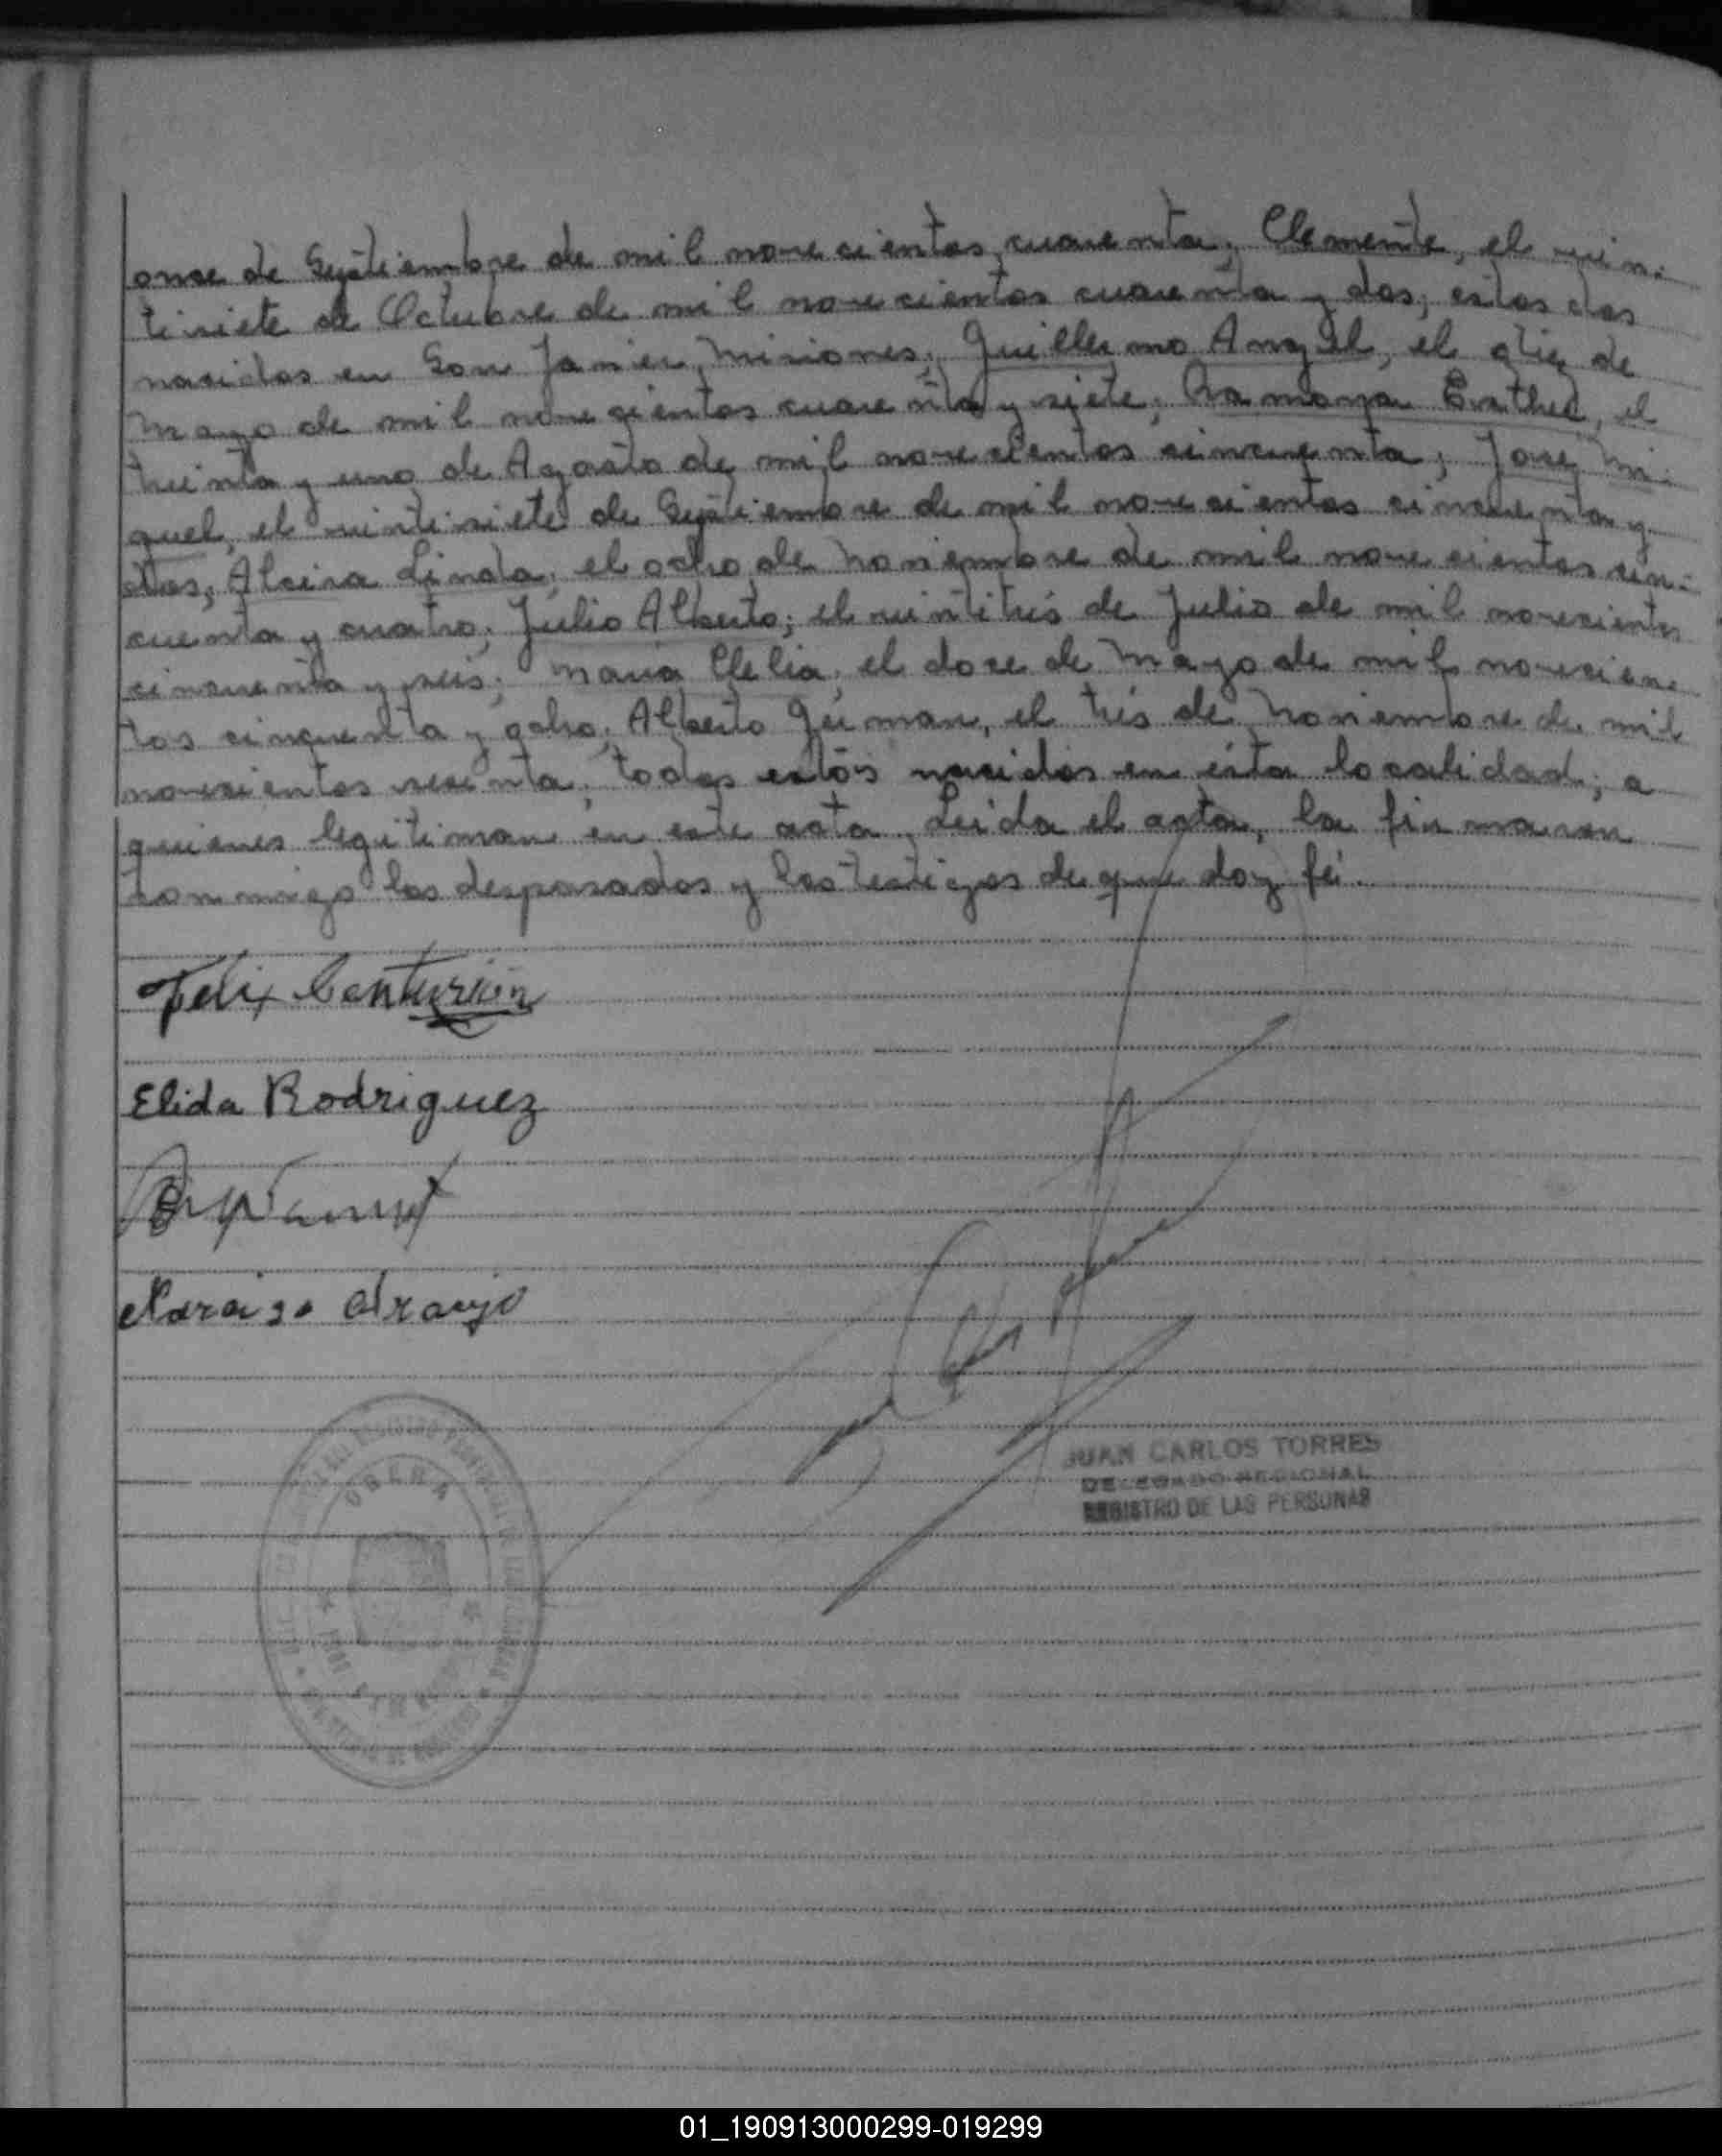 once de Septiembre de mil novecientos cuarenta; Clemente, el vein-
tisiete de Octubre de mil novecientos cuarenta y dos; estos dos
nacidos en San Javier, Misiones; Guillermo Angel, el diez de
Mayo de mil novecientos cuarenta y siete; Ramona Esther, el
treinta y uno de Agosto de mil novecientos cincuenta; Jose Mi-
guel, el veintisiete de Septiembre de mil novecientos cincuenta y
dos; Alcira Linda, el ocho de Noviembre de mil novecientos cin-
cuenta y cuatro; Julio Alberto; el veintitrés de Julio de mil novecientos
cincuenta y seis; María Clelia, el doce de Mayo de mil novecien-
tos cincuenta y ocho; Alberto Germán, el trés de Noviembre de mil
novecientos sesenta; todos estós nacidos en ésta localidad; a
quienes legitiman en este acta. Leida el acta, la firmaron
conmigo los desposados y los testigos de que doy fé.
Felix Centurión
Elida Rodriguez
Araujo
JUAN CARLOS TORRES
DELEGADO REGIONAL
REGISTRO DE LAS PERSONAS
OBERA
01_190913000299-019299